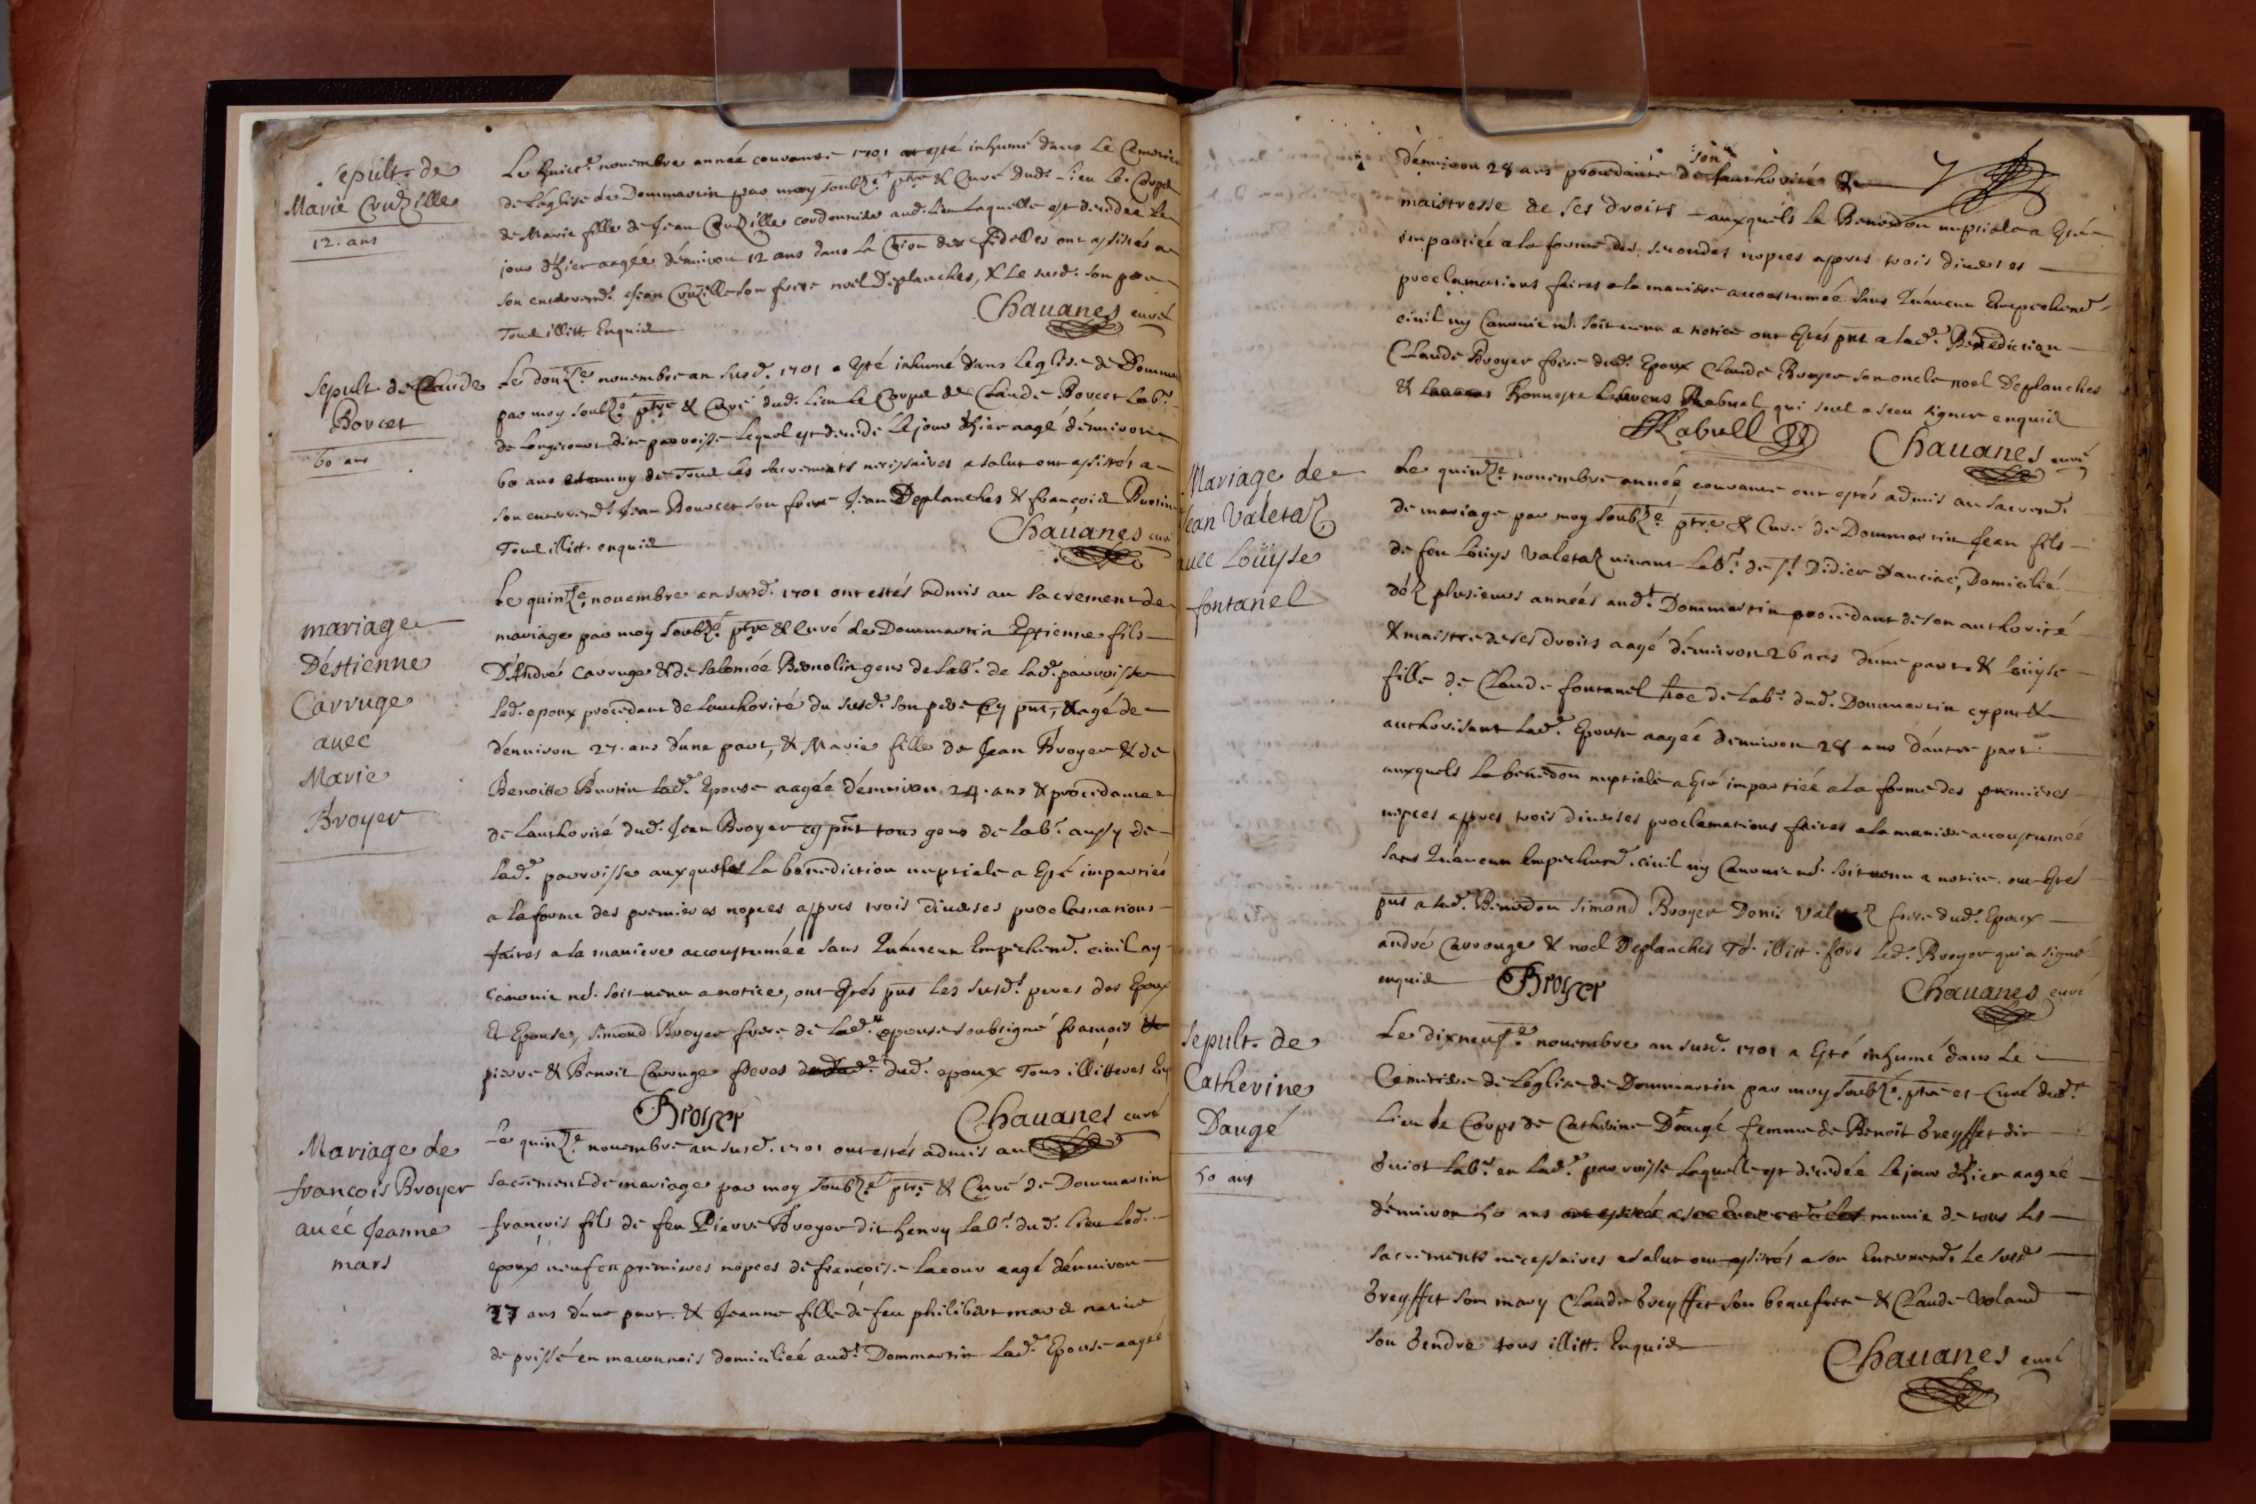 Sepult. de
Marie Cruzille
12. ans
Le huict.e novembre année courante 1701 a esté inhumé dans le Cemetiere
de l'église de Dommartin par moy soubz.é ptre & Curé dud. lieu le Corps
de Marie fille de Jean Cruzille cordonnier aud. lieu laquelle est decedée le
jour d'hier aagée d'environ 12 ans dans la des fidelles ont assistés a
son enterremt. Jean Cruzille son frere noel Deplanches, & le susd. son pere
Tous illitt. Enquis
Chauanes curé
Sepult. de Claude
Borcet
60 ans
Le douz.e novembre an susd. 1701 a esté inhumé dans l'eglise de Domma
par moy soubz.é ptre & Curé dud. lieu le Corps de Claude Borcet lab.r
de Longecourt dite parroisse lequel est decedé le jour d'hier aagé d'environ
60 ans et muny de tous les sacrements necessaires a salut ont assistés a
son enterremt. Jean Bourcet son frere Jean Deplanches & françois Burtin
Tous illitt. enquis
Chauanes curé
mariage
D'éstienne
Carruge
avec
Marie
Broyer
Le quinz.e novembre an susd. 1701 ont estés admis au sacrement de
mariage par moy soubz.é ptre & Curé de Dommartin Estienne fils
D'André Carruge & de Salomée Benolin gens de lab.r de lad. parroisse
led. epoux procedant de l'authorité du susd. son pere cy pnt, & agé de
d'environ 27. ans d'une part, & Marie fille de Jean Broyer & de
Benoitte Burtin lad.e Epouse aagée d'environ 24. ans & procedante
de l'authorité dud. Jean Broyer cy pnt tous gens de lab.r aussy de
lad.e parroisse auxquels la bénediction nuptiale a esté impartiée
a la forme des premieres nopces appres trois diverses proclamations
faites a la maniere accoustumée sans qu'aucun Empechemt. civil ny
canonic nd. soit venu a notice, ont Estés pnts les susd.t peres des Epoux
Et Epouse, Simond Broyer frere de lad.e epouse soubsigné françois &
pierre & Benoit Carruge freres dud. epoux Tous illitteres Enq
Broyer
Chauanes curé
Mariage de
françois Broyer
avéc Jeanne
mars
Le quinz.e novembre an susd. 1701 ont estés admis au
sacrement de mariage par moy soubz.é ptre & Curé de Dommartin
françois fils de feu Pierre Broyer dit henry lab.r dud. lieu led.
epoux veuf en premieres nopces de françoise Lacour aagé d'environ
37 ans d'une part. & Jeanne fille de feu philibert mars native
de prissé en maconnois domiciliée aud.t Dommartin lad.e Epouse aagée
d'environ 28 ans procedante de son authorité &
maistresse de ses droits auxquéls la Benedon nuptiale a Esté
impartiée a la forme des secondes nopces appres trois diverses
proclamations faites a la maniere accoustumée sans qu'aucun Empechemt.
civil ny Canonic nd. soit venu a notice ont Estés pnt a lad.e Benediction
Claude Broyer frere dud. Epoux Claude Broyer son oncle noel Deplanches
& honneste Laurens Rabuel qui seul a sceu signer enquis
Rabuell
Chauanes curé
Mariage de
Jean Valetaz
avec Loüyse
fontanel
Le quinz.e novembre année courante ont estés admis au sacremt.
de mariage par moy soubz.é ptre & Curé de Dommartin Jean fils
de feu Loüys Valetaz vivant lab.r de S.t Didier d'aucine, Domicilié
déz plusieurs années aud.t Dommartin procedant de son authorité
& maistre de ses droits aagé d'environ 26 ans d'une part. & Loüyse
fille de Claude fontanel de lab.r dud. Dommartin cy pnt &
authorisant lad.e Epouse aagée d'environ 28 ans d'autre part
auxquels la bénédon nuptiale a Esté impartiée a la forme des premieres
nopces appres trois diverses proclamations faites a la maniere accoustumée
sans qu'aucun Empechemt. civil ny Canonic nd. soit venu a notice. ont Estés
pnt a lad.e Benedon Simond Broyer Denis Valetaz frere dud. Epoux
andré Carrouge & noel Deplanches Ts. illitt. fors led. Broyer qui a signé
enquis
Broyer
Chauanes curé
Sepult. de
Catherine
Daugé
50 ans
Le dixneufs.e novembre an susd. 1701 a Esté inhumé dans le
Cemetiere de l'église de Dommartin par moy soubz.é ptre et Curé dud.t
lieu le Corps de Catherine Daugé femme de Benoît Greyffet dit
Guiot lab.r en lad.e parroisse laquelle est decedée le jour d'hier aagée
d'environ 50 ans munie de tous les
sacrements necessaires a salut ont assistés a son Enterremt. le susd.
Greyffet son mary Claude Greyffet son beaufrere & Claude Voland
son Gendre tous illitt. Enquis
Chauanes curé